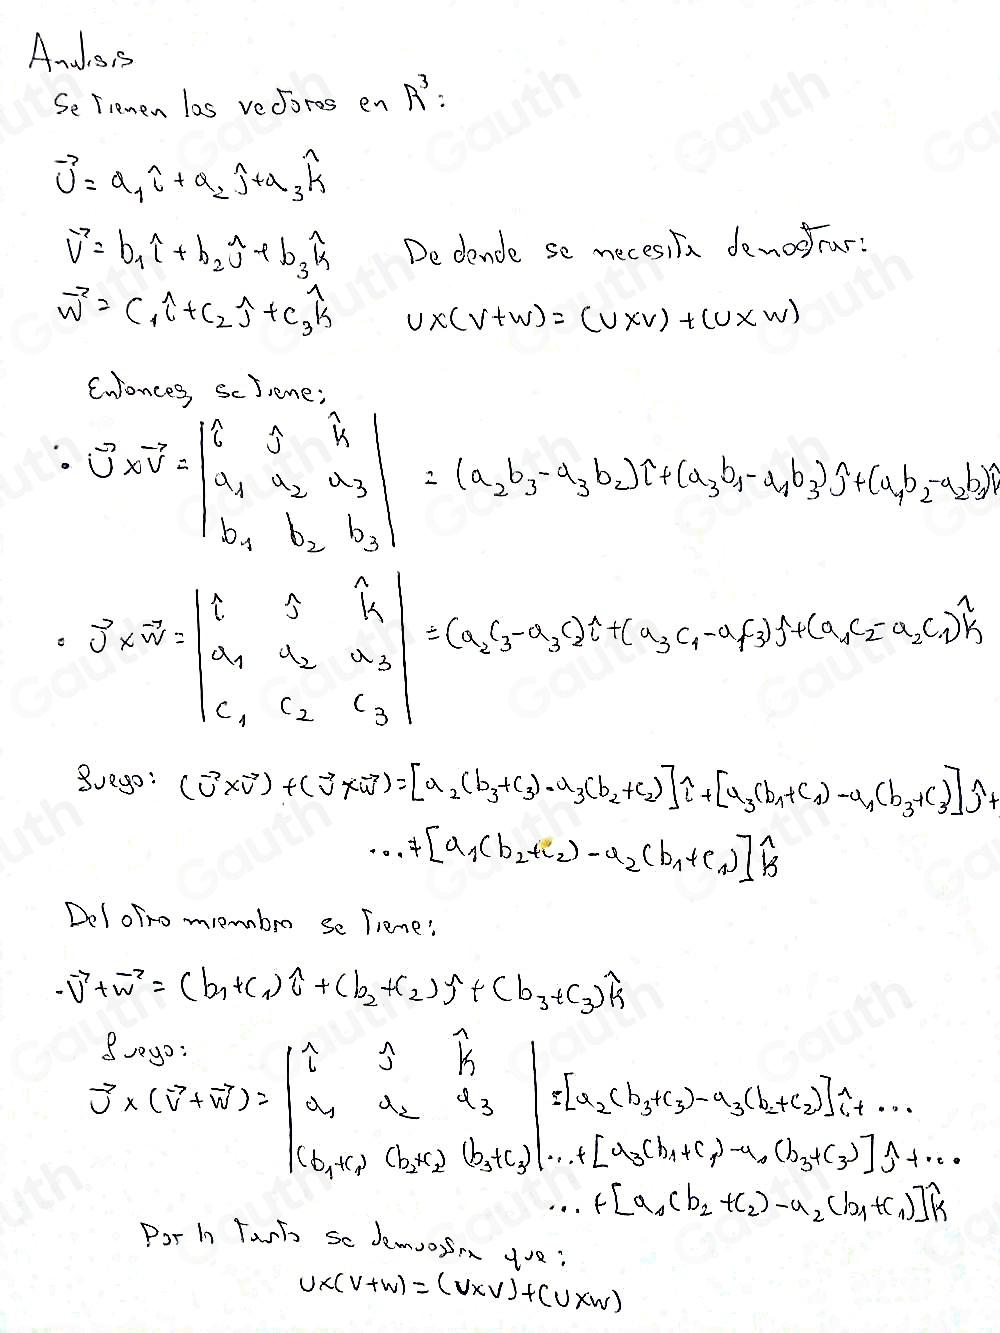 Analisis
Se Tienen los vectores en R³:
U⃗ = a₁î + a₂ĵ + a₃k̂
V⃗ = b₁î + b₂ĵ + b₃k̂   De donde se necesita demostrar:
W⃗ = C₁î + C₂ĵ + C₃k̂   U×(V+W) = (U×V) + (U×W)
Entonces se Tiene;
∴ U⃗×V⃗ = | î ĵ k̂ |
| a₁ a₂ a₃ | = (a₂b₃ - a₃b₂)î + (a₃b₁ - a₁b₃)ĵ + (a₁b₂ - a₂b₁)k̂
| b₁ b₂ b₃ |
| î ĵ k̂ |
• U⃗×W⃗ = | a₁ a₂ a₃ | = (a₂C₃ - a₃C₂)î + (a₃C₁ - a₁C₃)ĵ + (a₁C₂ - a₂C₁)k̂
| C₁ C₂ C₃ |
Luego: (U⃗×V⃗) + (U⃗×W⃗) = [a₂(b₃+C₃) - a₃(b₂+C₂)]î + [a₃(b₁+C₁) - a₁(b₃+C₃)]ĵ +
... + [a₁(b₂+C₂) - a₂(b₁+C₁)]k̂
Del otro miembro se Tiene:
- V⃗ + W⃗ = (b₁+C₁)î + (b₂+C₂)ĵ + (b₃+C₃)k̂
Luego:
| î ĵ k̂ |
U⃗ × (V⃗ + W⃗) = | a₁ a₂ a₃ | = [a₂(b₃+C₃) - a₃(b₂+C₂)]î + ...
| (b₁+C₁) (b₂+C₂) (b₃+C₃) | ... + [a₃(b₁+C₁) - a₁(b₃+C₃)]ĵ + ...
... + [a₁(b₂+C₂) - a₂(b₁+C₁)]k̂
Por lo Tanto se demuestra que:
U×(V+W) = (U×V) + (U×W)
Gauth